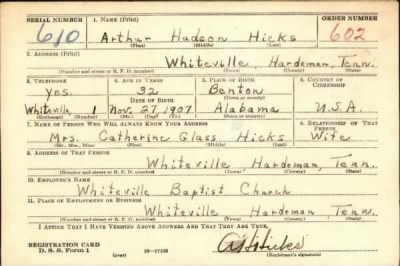 SERIAL NUMBER 1. NAME (Print) ORDER NUMBER
610 Arthur Hudson Hicks 602
(First) (Middle) (Last)
2. ADDRESS (Print)
Whiteville, Hardeman, Tenn.
(Number and street or R. F. D. number) (Town) (County) (State)
3. TELEPHONE 4. AGE IN YEARS 5. PLACE OF BIRTH 6. COUNTRY OF CITIZENSHIP
yes. 32 Benton
DATE OF BIRTH (Town or county)
Whiteville 1 Nov. 27, 1907 Alabama U.S.A.
(Exchange) (Number) (Mo.) (Day) (Yr.) (State or country)
7. NAME OF PERSON WHO WILL ALWAYS KNOW YOUR ADDRESS 8. RELATIONSHIP OF THAT PERSON
Mrs. Catherine Glass Hicks Wife
(Mr., Mrs., Miss) (First) (Middle) (Last)
9. ADDRESS OF THAT PERSON
Whiteville, Hardeman, Tenn.
(Number and street or R. F. D. number) (Town) (County) (State)
10. EMPLOYER'S NAME
Whiteville Baptist Church
11. PLACE OF EMPLOYMENT OR BUSINESS
Whiteville Hardeman Tenn.
(Number and street or R. F. D. number) (Town) (County) (State)
I AFFIRM THAT I HAVE VERIFIED ABOVE ANSWERS AND THAT THEY ARE TRUE.
REGISTRATION CARD
D. S. S. Form 1 (over) 16—17105 (Registrant's signature)